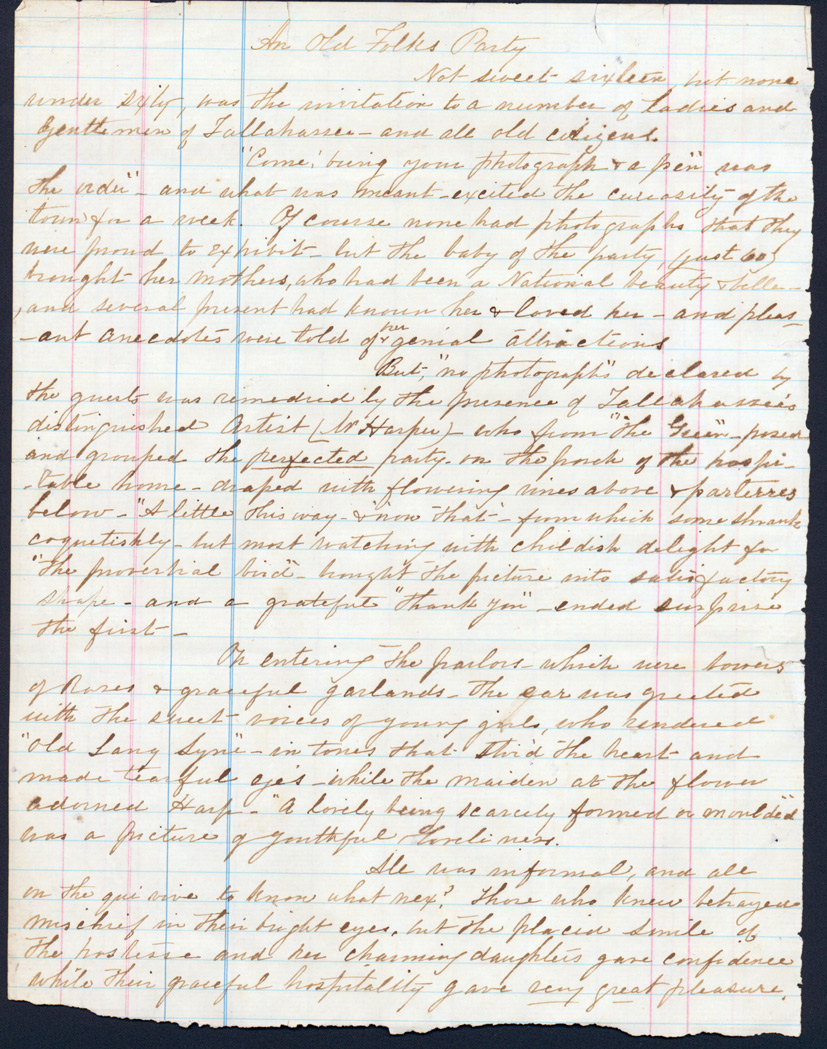 An Old Folks Party
Not sweet sixteen, but none
under sixty, was the invitation to a number of Ladies and
Gentlemen of Tallahassee - and all old citizens.
"Come, bring your photograph & a pen" was
the order" - and what was meant - excited the curiosity of the
town for a week. Of course none had photographs that they
were proud to exhibit - but the baby of the party, (just 60)
brought her mothers, who had been a National beauty & belle -
, and several present had known her & loved her - and pleas-
-ant anecdotes were told of her genial attractions
But, "no photograph" declared by
the guests was remedied by the presence of Tallahassee's
distinguished Artist (Mr Harper) - who from "the Green" - posed
and grouped the perfected party on the porch of the hospi-
-table home - draped with flowering vines above & parterres
below - "A little this way - & now that" - from which some shrank
coquetishly - but most watching with childish delight for
"the proverbial bird" - brought the picture into satisfactory
shape - and a grateful "thank you" - ended surprise
the first -
On entering the parlors - which were bowers
of Roses & graceful garlands - the ear was greeted
with the sweet voices of young girls, who rendered
"Old Lang Syne" - in tones that stir'd the heart and
made tearful eyes - while the maiden at the flower
adorned Harp - "A lovely being scarcely formed or moulded"
was a picture of youthful loveliness.
All was informal, and all
on the qui vive to know what nex? Those who knew betrayed
mischief in their bright eyes, but the placid smile of
the hostess and her charming daughters gave confidence
while their graceful hospitality gave very great pleasure.